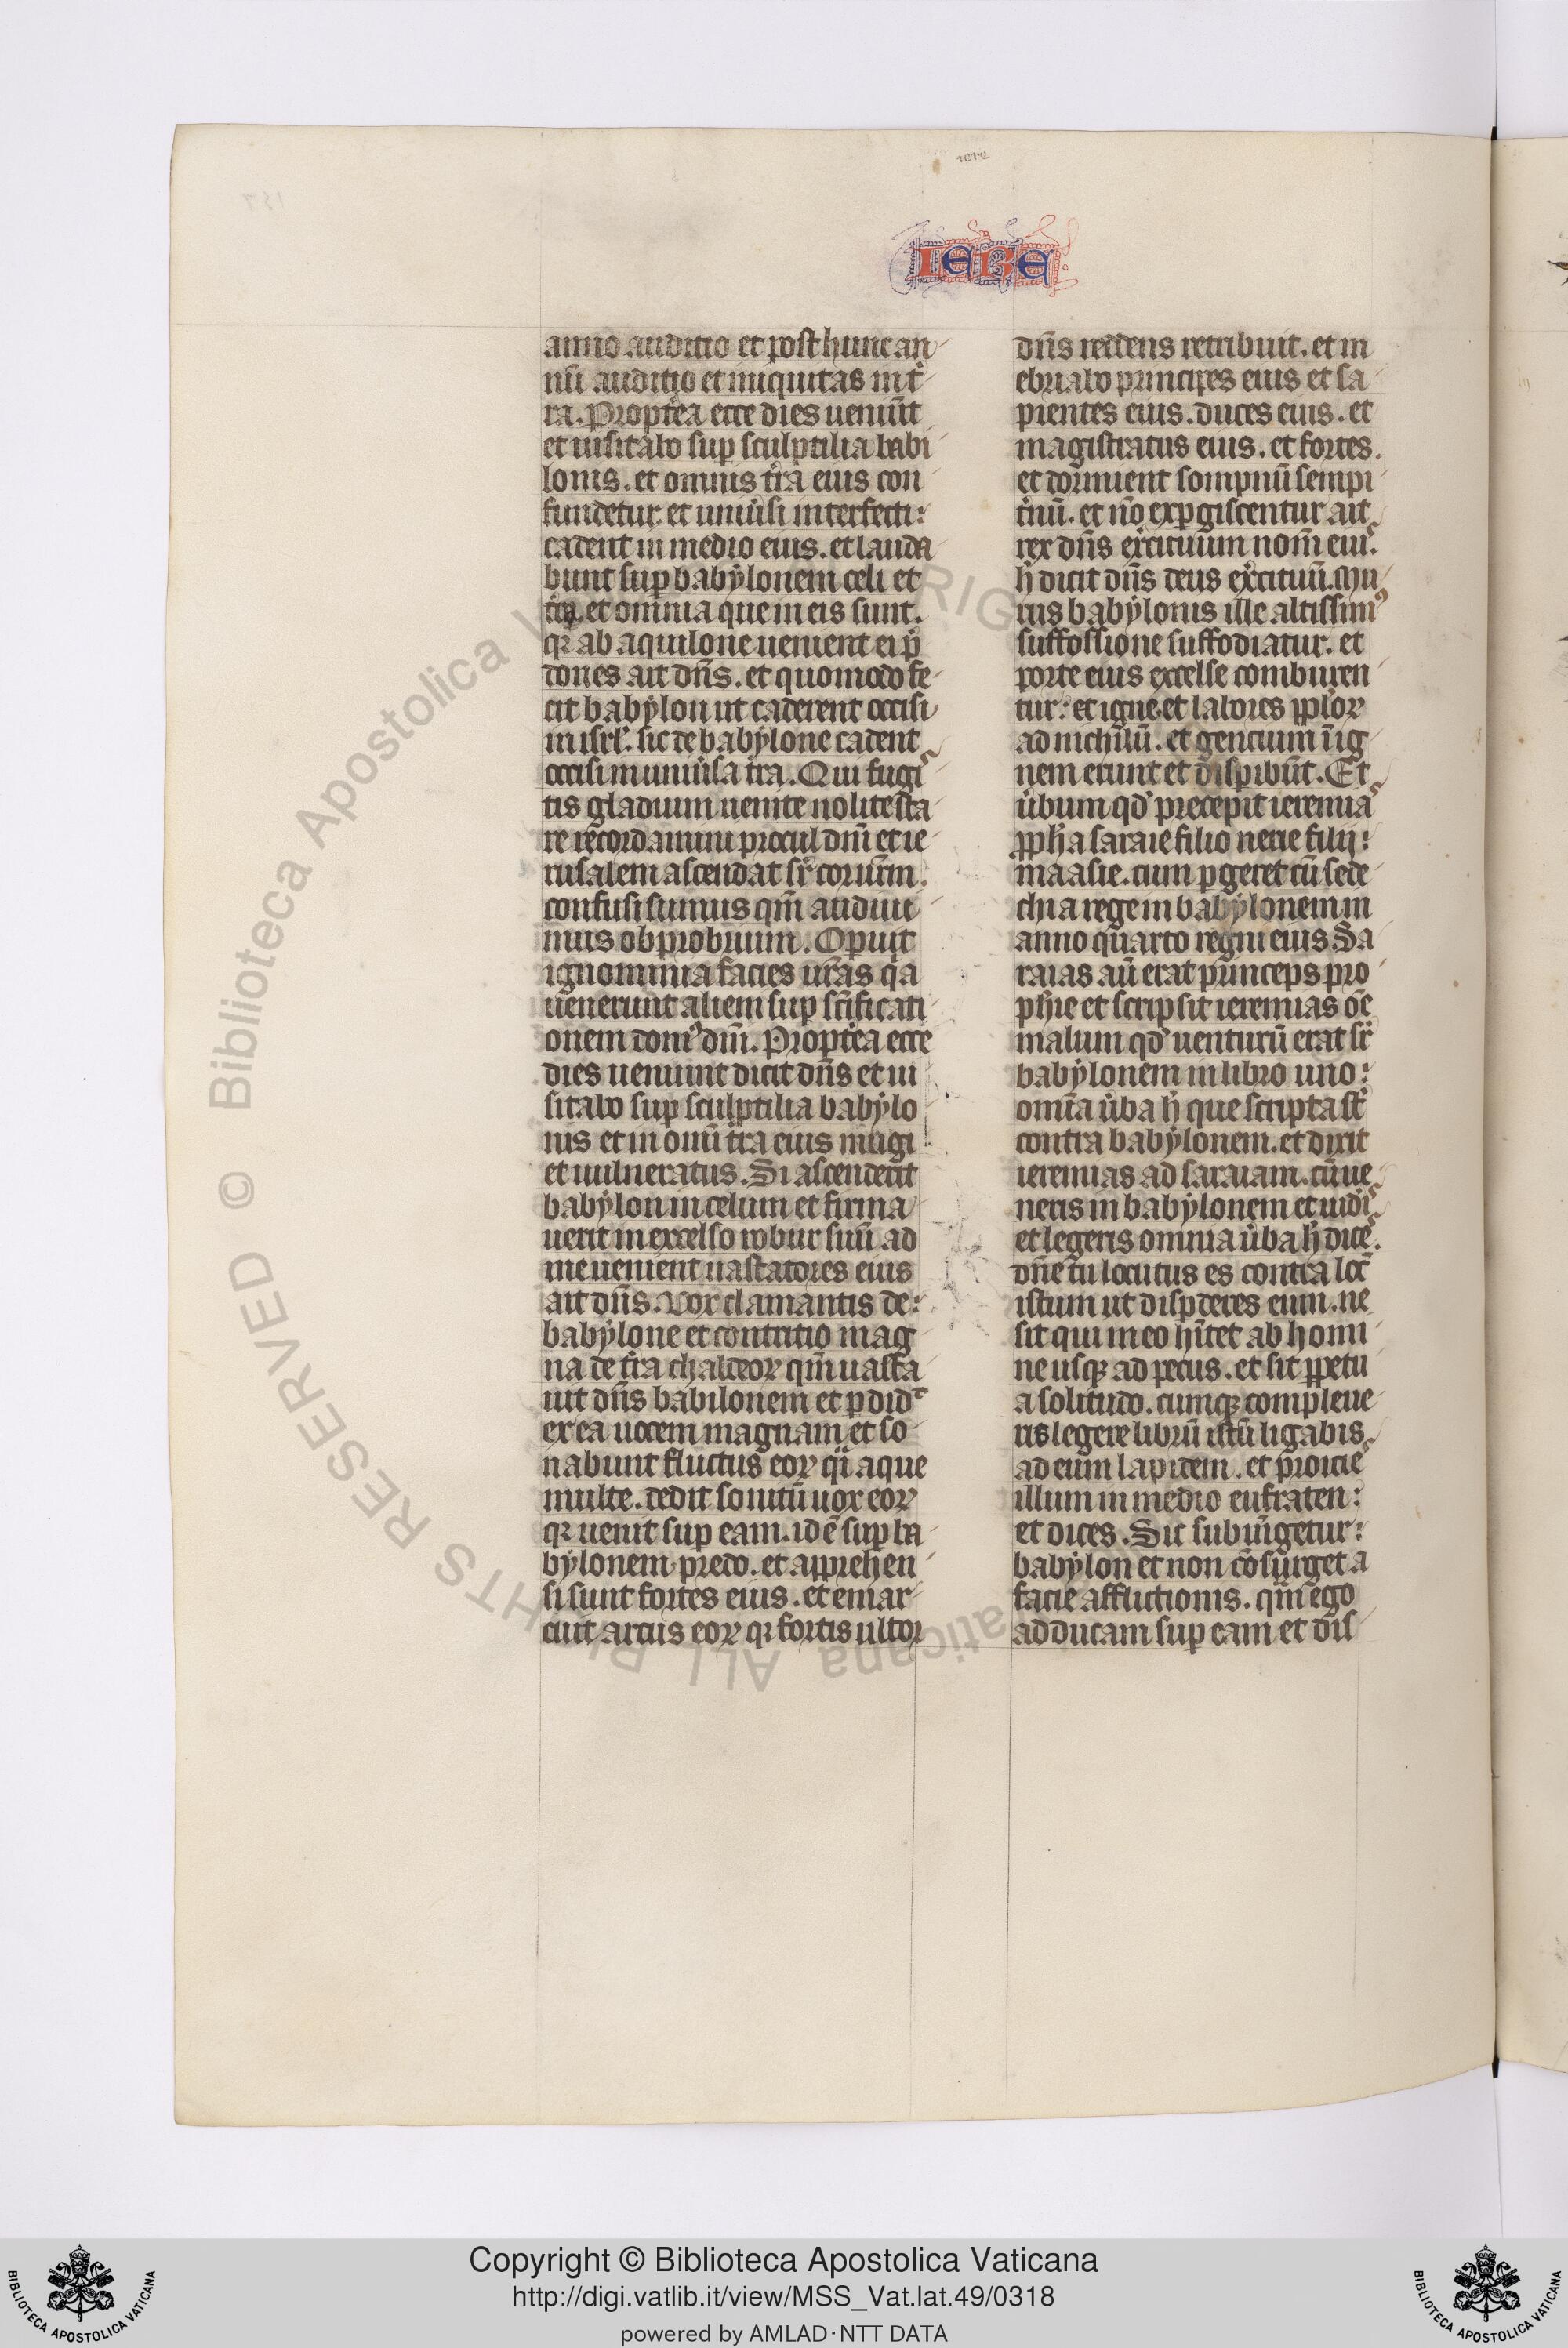 iere
IERE
anno auditio et post hunc an
nū auditio et iniquitas in t̄
ra. Propt̄ea ecce dies ueniūt
et uisitabo sup sculptilia babi
lonis. et omnis t̄ra eius con
fundetur. et uniūsi interfecti:
cadent in medio eius. et lauda
bunt sup babylonem celi et
t̄ra. et omnia que in eis sunt.
qꝛ ab aquilone uenient ei p̄
dones ait dn̄s. et quomodo fe
cit babylon ut caderent occisi
in isrl̄. sic de babylone cadent
occisi in uniūsa t̄ra. Qui fugi
tis gladium uenite nolite sta
re recordamini procul dn̄i et ie
rusalem ascendat sr̄ cor ur̄m.
confusi sumus qm̄ audiui
mus obprobrium. Opuit
ignominia facies ur̄as q̄a
uenerunt alieni sup scīficati
onem domꝰ dn̄i. Propt̄ea ecce
dies ueniunt dicit dn̄s et ui
sitabo sup sculptilia babylo
nis et in omī t̄ra eius mugi
et uulneratus. Si ascenderit
babylon in celum et firma
uerit in excelso robur suū ad
me uenient uastatores eius
ait dn̄s. Vox clamantis de:
babylone et contritio mag
na de t̄ra chaldeoꝝ qm̄ uasta
uit dn̄s babilonem et ꝑdidͭ
ex ea uocem magnam et so
nabunt fluctus eoꝝ q̄i aque
multe. dedit sonitū uox eoꝝ
qꝛ uenit sup eam. id ē sup ba
bylonem predo. et apprehen
si sunt fortes eius. et emar
cuit arcus eoꝝ qꝛ fortis ultor
dn̄s reddens retribuit. et in
ebriabo principes eius et sa
pientes eius. duces eius. et
magistratus eius. et fortes.
et dormient sompnū sempi
t̄nū. et nō exꝑgiscentur ait
rex dn̄s ex̄cituum nom̄ eius.
h̄ dicit dn̄s deus ex̄cituū. Mu
rus babylonis ille altissimꝰ
suffossione suffodiatur. et
porte eius excelse comburen
tur: et igne. et labores pploꝝ
ad nichilū. et gentium ī ig
nem erunt et disꝑibūt. Et
ūbum qd̄ precepit ieremias
ꝓph̄a saraie filio nerie filij:
maasie. cum ꝑgeret cū sede
chia rege in babylonem in
anno quarto regni eius Sa
raias aū erat princeps pro
phīe et scripsit ieremias om̄e
malum qd̄ uenturū erat sr̄
babylonem in libro uno:
omīa ūba h̄ que scripta st̄
contra babylonem. et dixit
ieremias ad saraiam. cū ue
neris in babylonem et uidis
et legeris omnia ūba h̄ dices.
dn̄e tu locutus es contra loc̄
istum ut disꝑderes eum. ne
sit qui in eo hītet ab homi
ne usqꝫ ad pecus. et sit ꝑpetu
a solitudo. cumqꝫ compleue
ris legere librū istū ligabis
ad eum lapidem. et proicies
illum in medio eufraten:
et dices. Sic subm̄getur:
babylon et non cōsurget a
facie afflictionis. qm̄ ego
adducam sup eam et dis
© Biblioteca Apostolica Vaticana ALL RIGHTS RESERVED
Copyright © Biblioteca Apostolica Vaticana
http://digi.vatlib.it/view/MSS_Vat.lat.49/0318
powered by AMLAD·NTT DATA
BIBLIOTECA APOSTOLICA VATICANA
BIBLIOTECA APOSTOLICA VATICANA